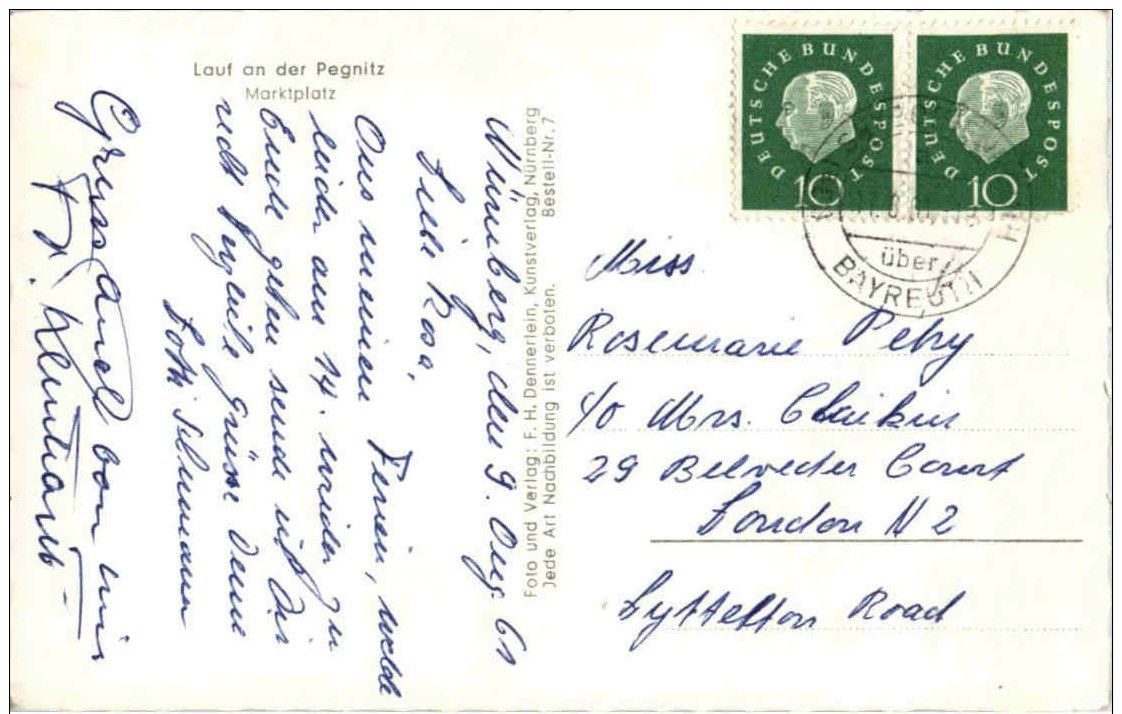 Lauf an der Pegnitz
Marktplatz
Nürnberg, den 9. Aug. 61
Liebe Rosa,
Aus meinen Ferien, welche
leider am 14. wieder zu
Ende gehen sende ich Dir
recht herzliche Grüsse Deine
Lotte
Gruss auch von mir
Foto und Verlag: F. H. Dennerlein, Kunstverlag, Nürnberg
Jede Art Nachbildung ist verboten. Bestell-Nr. 7
DEUTSCHE BUNDESPOST
10
DEUTSCHE BUNDESPOST
10
über
BAYREUTH
Miss
Rosemarie Petry
c/o Mrs. Chaikin
29 Belveder Court
London N 2
Lyttelton Road